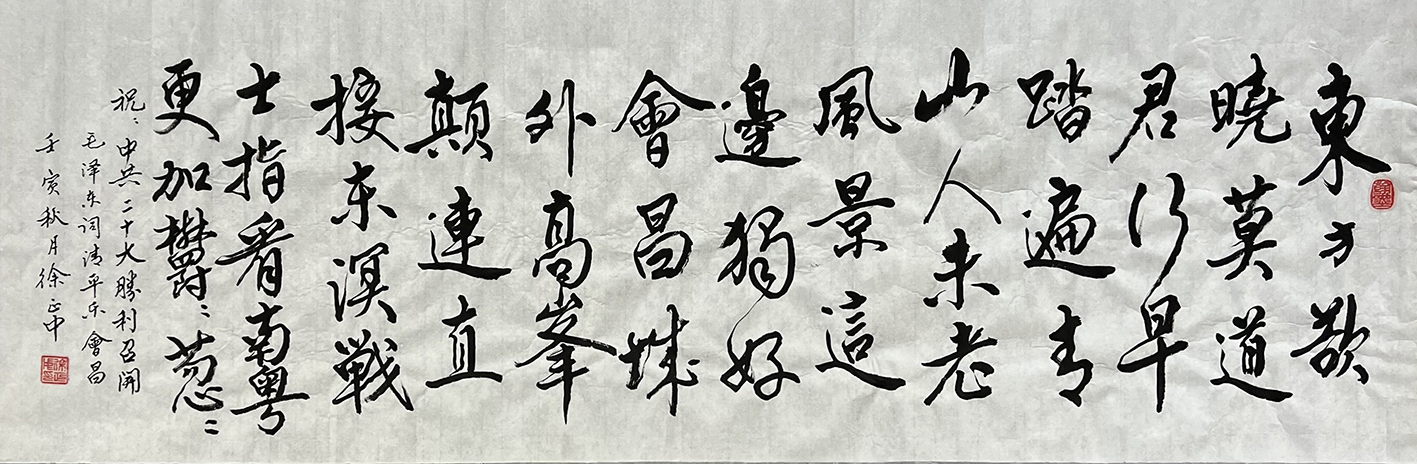 東方欲
曉莫道
君行早
踏遍青
山人未老
風景這
邊獨好
會昌城
外高峯
顛連直
接东溟戰
士指看南粤
更加鬱〻葱〻
祝：中共二十大勝利召開
毛泽东词清平乐會昌
壬寅秋月徐正中